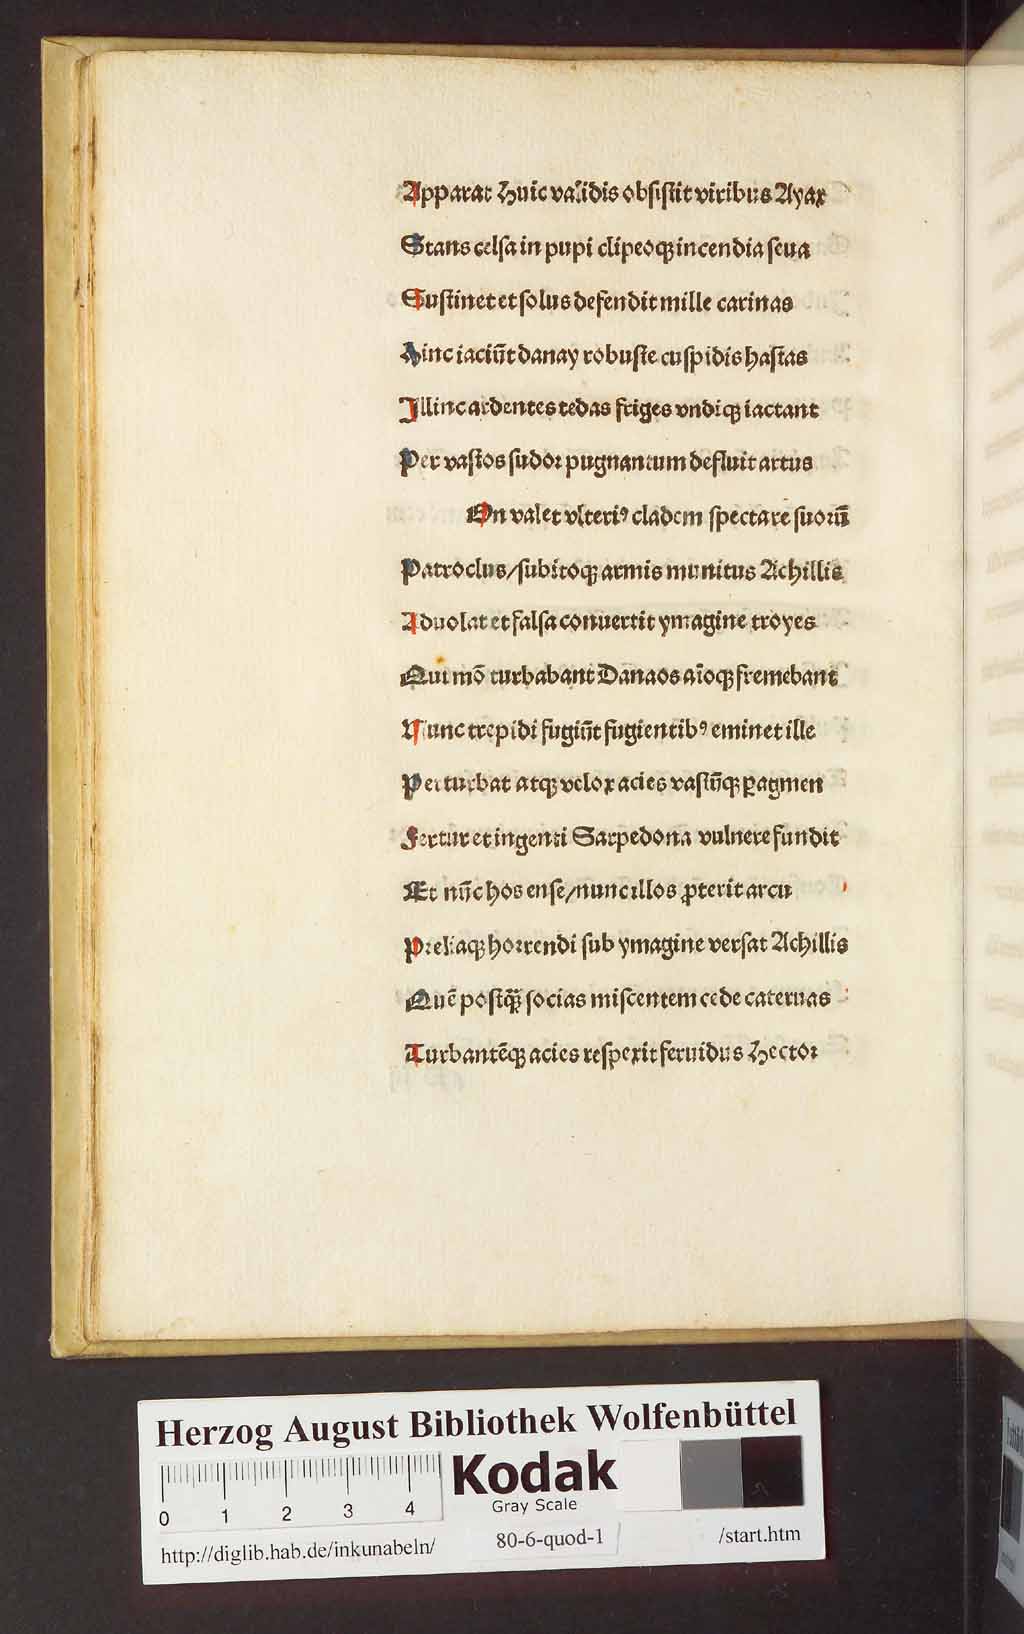 Apparat Huic validis obsistit viribus Ayax
Stans celsa in pupi clipeoqꝫ incendia seua
Sustinet et solus defendit mille carinas
Hinc iaciūt danay robuste cuspidis hastas
Illinc ardentes tedas friges vndiqꝫ iactant
Per vastos sudor pugnantum defluit artus
On valet vlteriꝰ cladem spectare suorū
Patroclus/subitoqꝫ armis munitus Achillis
Aduolat et falsa conuertit ymagine troyes
Qui mō turbabant Danaos aīoqꝫ fremebant
Nunc trepidi fugiūt fugientibꝰ eminet ille
Perturbat atqꝫ velox acies vastūqꝫ ꝑ agmen
Fertur et ingenti Sarpedona vulnere fundit
Et nūc hos ense/nunc illos ꝓterit arcu
Preliaqꝫ horrendi sub ymagine versat Achillis
Quē postqꝫ̄ socias miscentem cede cateruas
Turbantēqꝫ acies respexit feruidus Hector
Herzog August Bibliothek Wolfenbüttel
Kodak
Gray Scale
0 1 2 3 4
http://diglib.hab.de/inkunabeln/ 80-6-quod-1 /start.htm